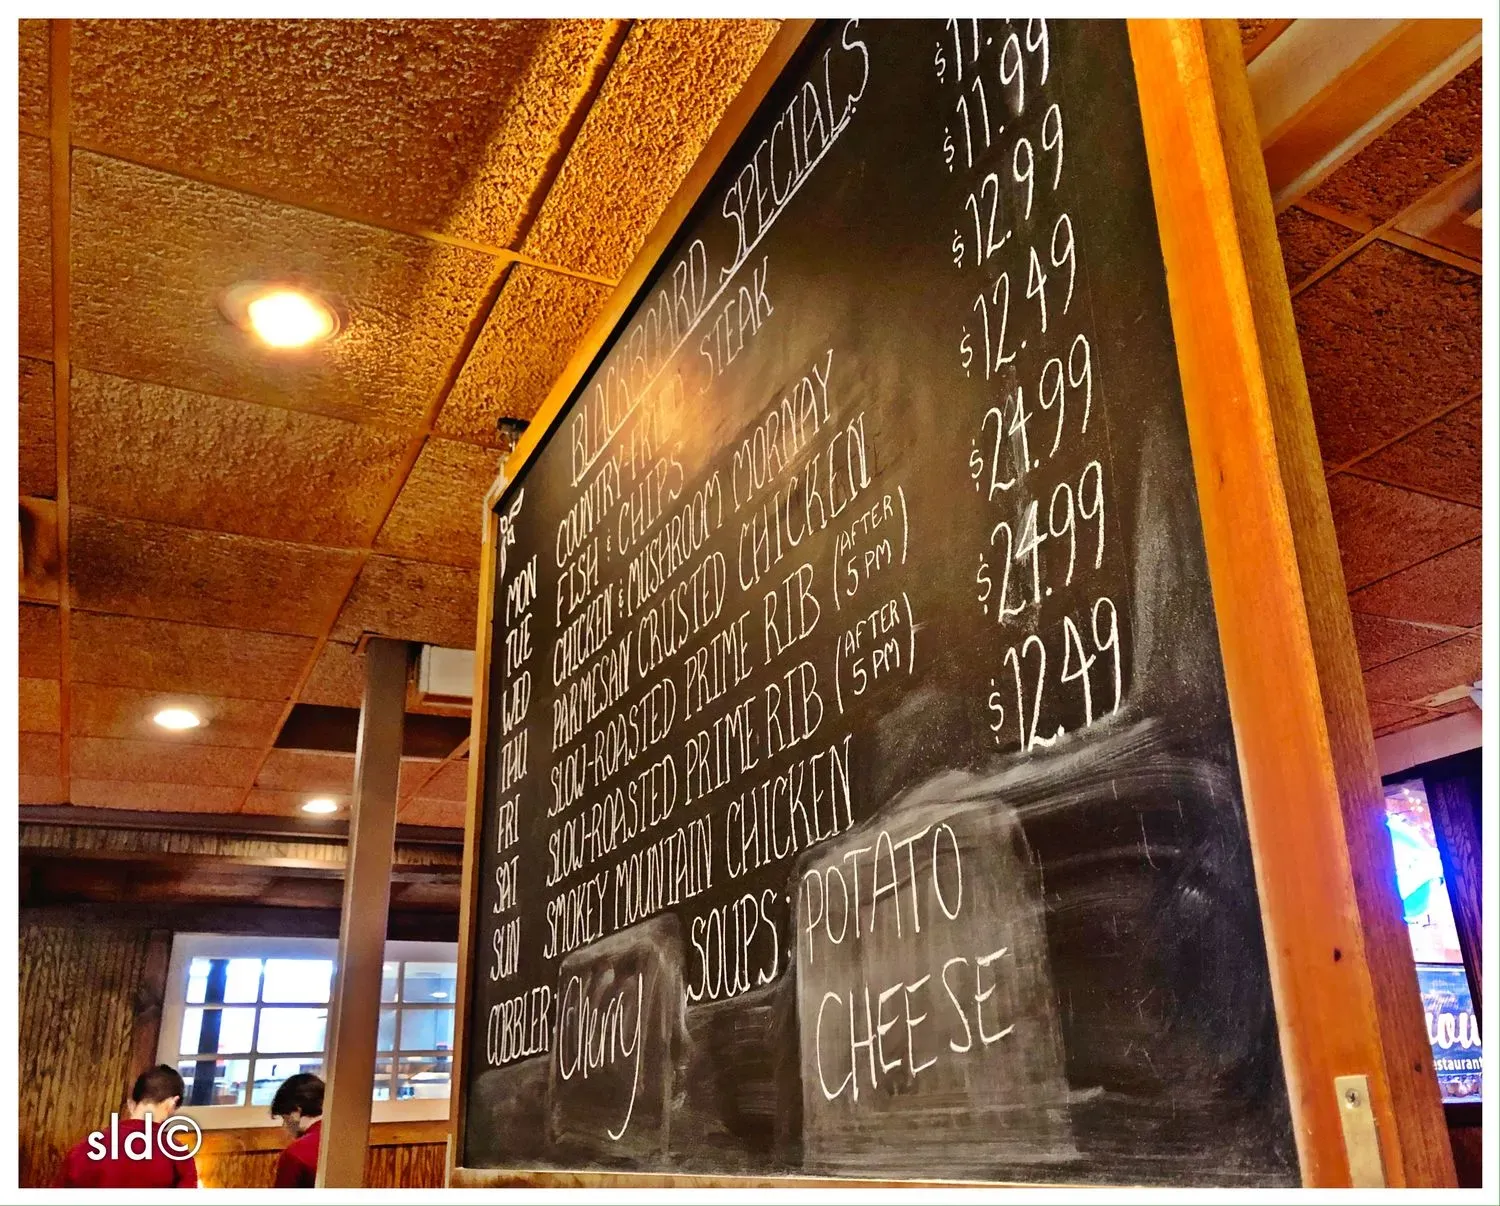 BLACKBOARD SPECIALS
MON COUNTRY-FRIED STEAK $11.
TUE FISH & CHIPS $11.99
WED CHICKEN & MUSHROOM MORNAY $12.99
THU PARMESAN CRUSTED CHICKEN $12.49
FRI SLOW-ROASTED PRIME RIB (AFTER 5 PM) $24.99
SAT SLOW-ROASTED PRIME RIB (AFTER 5 PM) $24.99
SUN SMOKEY MOUNTAIN CHICKEN $12.49
COBBLER: Cherry
SOUPS: POTATO
CHEESE
sld©